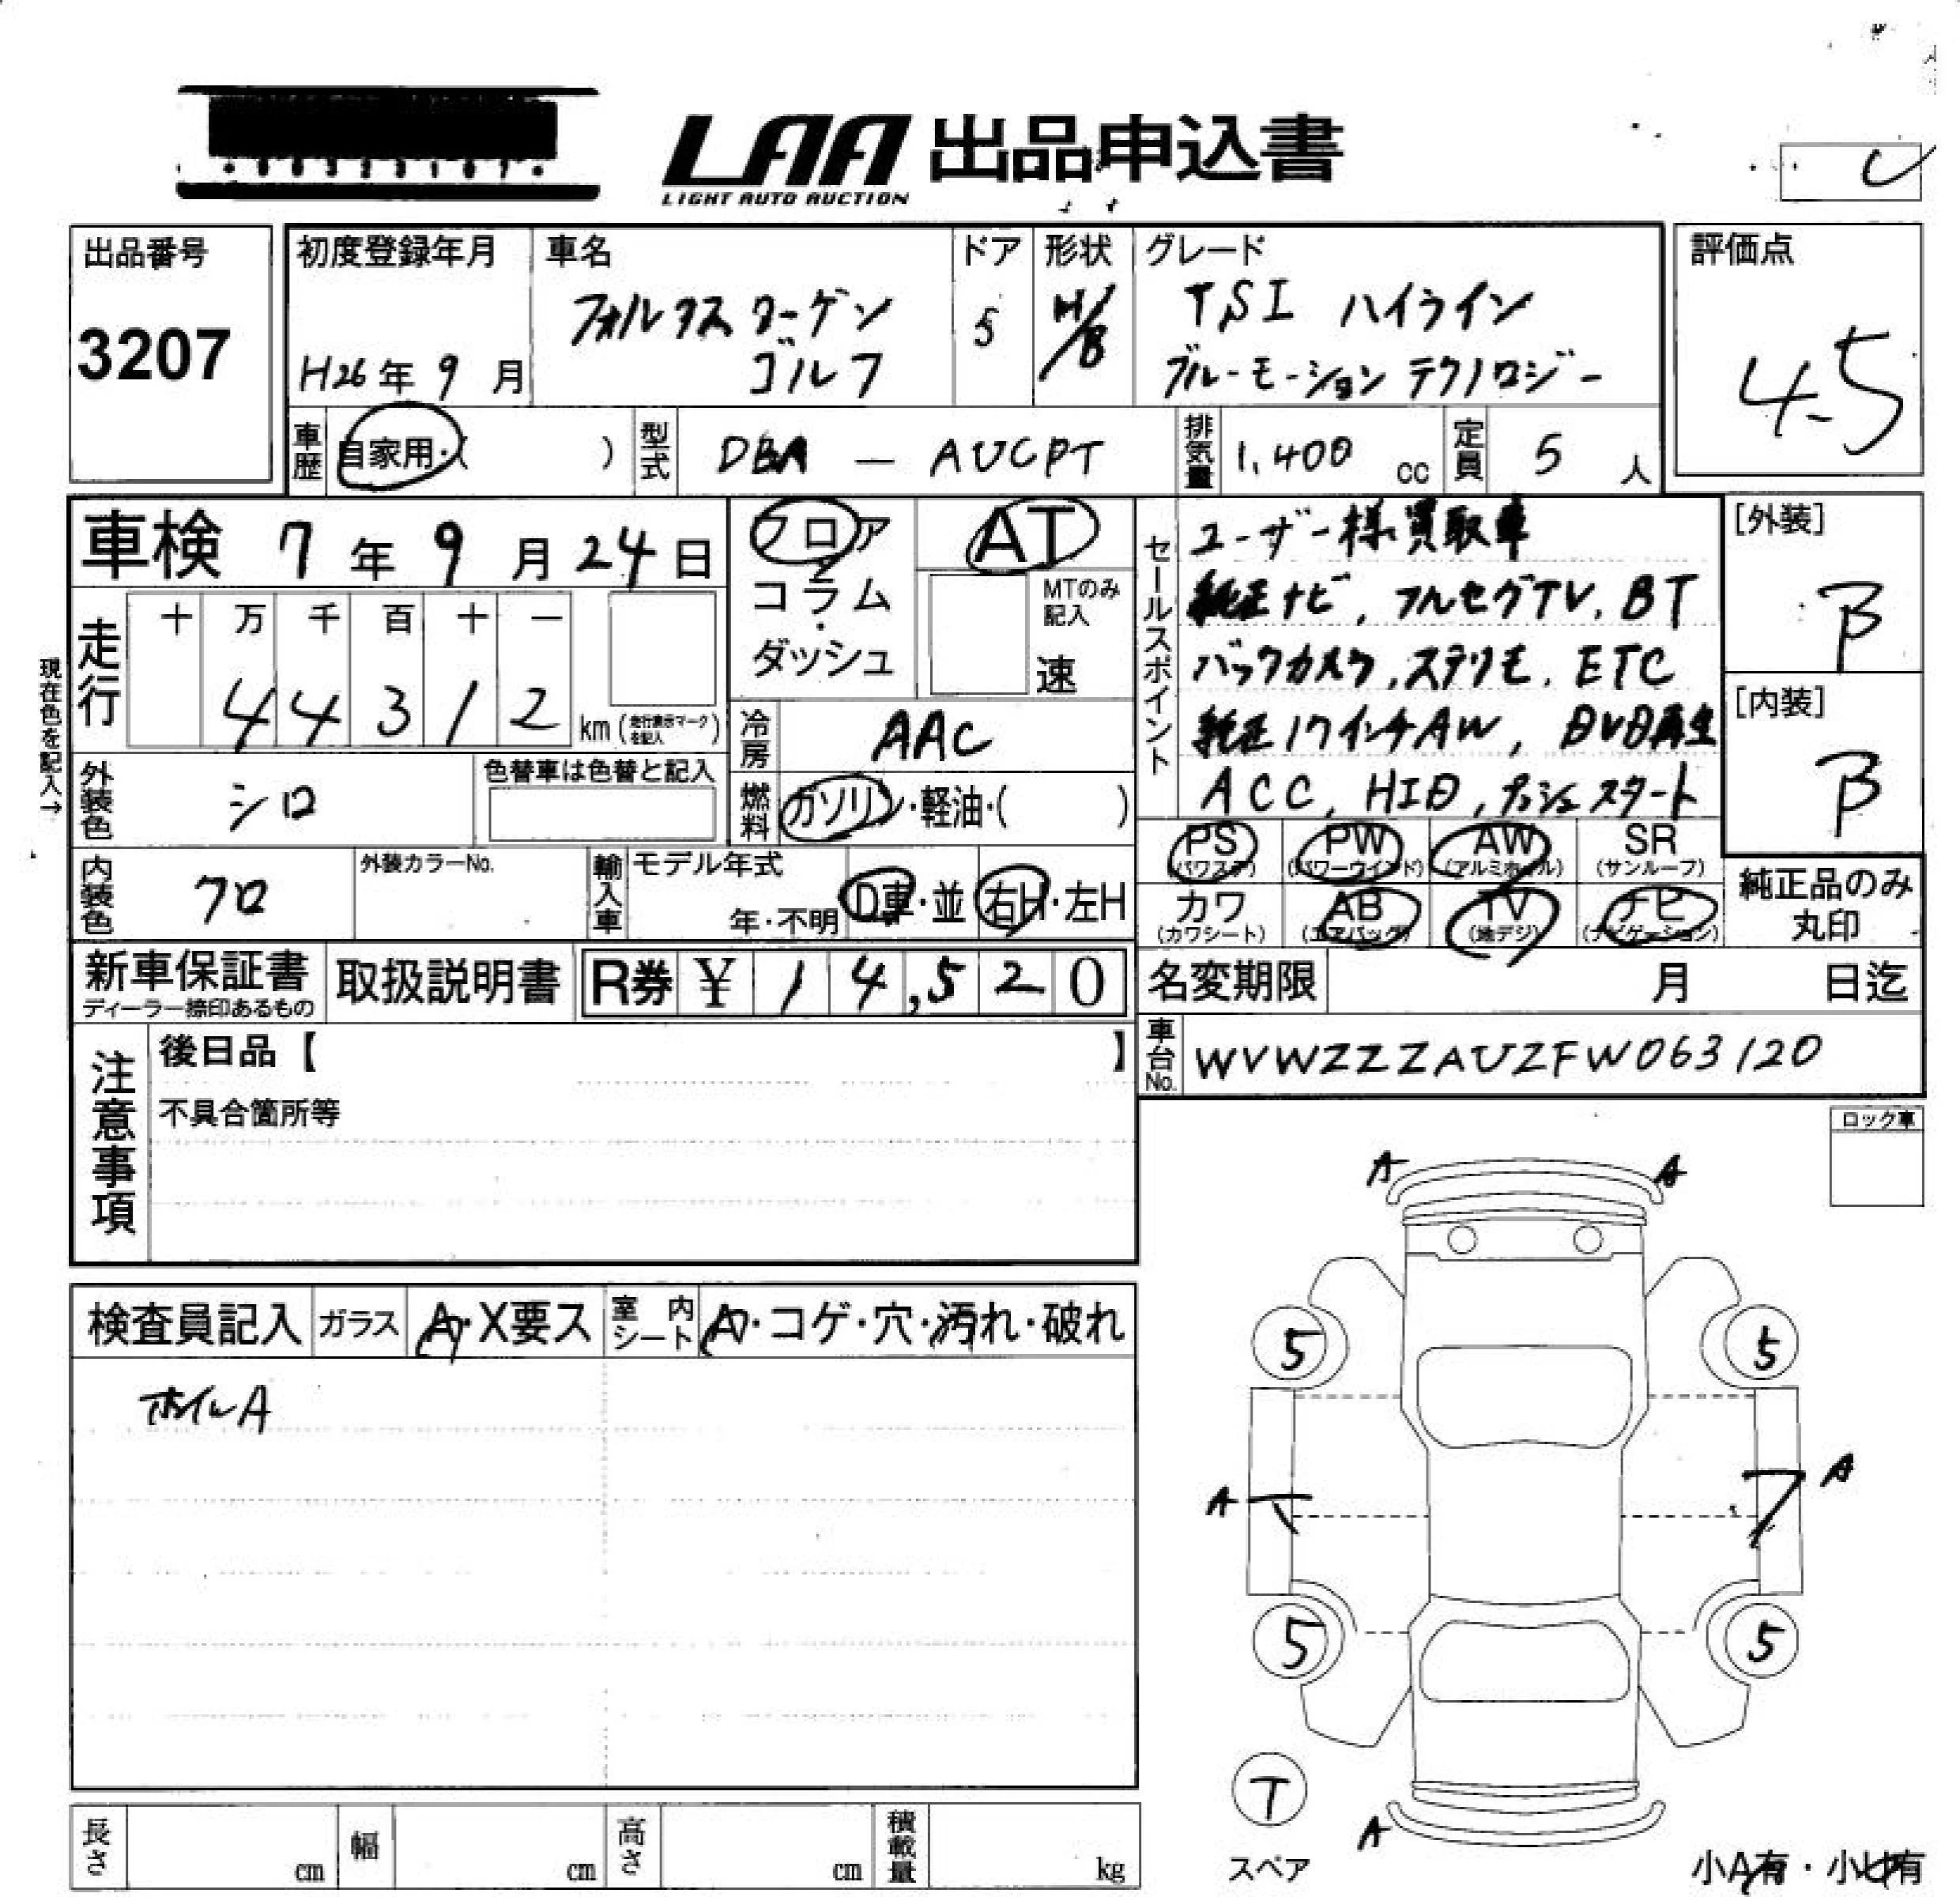 LAA 出品申込書
LIGHT AUTO AUCTION
出品番号
3207
初度登録年月
H26年 9 月
車名
フォルクスワーゲン
ゴルフ
ドア
5
形状
H/B
グレード
TSI ハイライン
ブルーモーション テクノロジー
評価点
4.5
車歴
自家用・( )
型式
DBA — AUCPT
排気量
1,400 cc
定員
5 人
車検 7 年 9 月 24 日
走行
十 万 千 百 十 一
4 4 3 1 2 km (走行表示マークを記入)
現在色を記入→
フロア・
コラム・
ダッシュ
AT
MTのみ記入
速
冷房
AAC
燃料
ガソリン・軽油・( )
外装色
シロ
色替車は色替と記入
内装色
クロ
外装カラーNo.
輸入車
モデル年式
年・不明
D車・並
右H・左H
セールスポイント
ユーザー様買取車
純正ナビ, フルセグTV, BT
バックカメラ, ステリモ, ETC
純正17インチAW, DVD再生
ACC, HID, プッシュスタート
[外装]
B
[内装]
B
PS (パワステ)
PW (パワーウインド)
AW (アルミホイル)
SR (サンルーフ)
カワ (カワシート)
AB (エアバッグ)
TV (地デジ)
ナビ (ナビゲーション)
純正品のみ
丸印
新車保証書
ディーラー捺印あるもの
取扱説明書
R券 ¥ 14,520
名変期限 月 日迄
車台No.
WVWZZZAUZFW063120
注意事項
後日品【 】
不具合箇所等
ロック車
検査員記入
ガラス
A・X要ス
室内シート
A・コゲ・穴・汚れ・破れ
ホイルA
A A
5 5
A A
5 5
T
スペア
A
小A有・小U有
長さ cm
幅 cm
高さ cm
積載量 kg